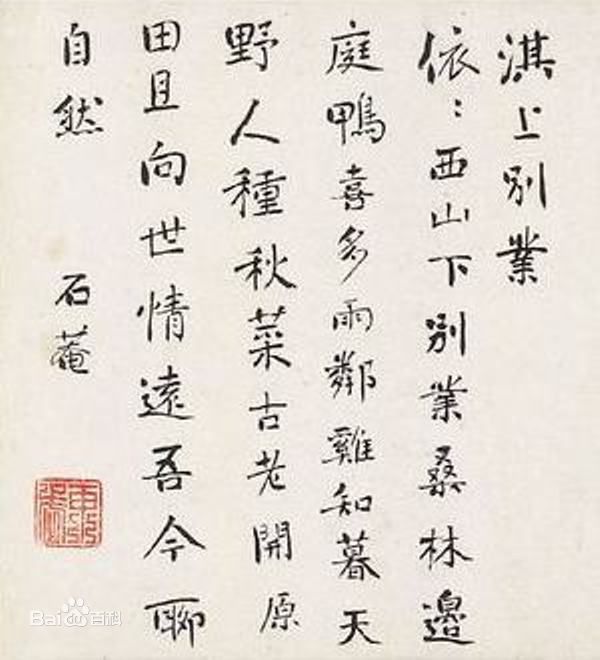 淇上別業
依〻西山下別業桑林邊
庭鴨喜多雨鄰雞知暮天
野人種秋菜古老開原
田且向世情遠吾今聊
自然
石菴
Bai du 百科